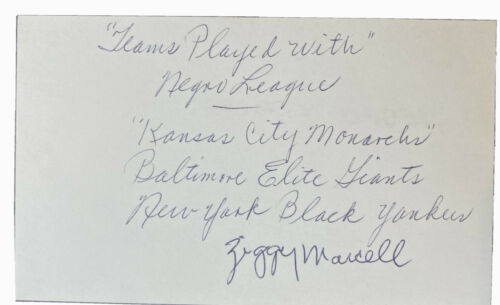 "Teams Played with"
Negro League
"Kansas City Monarchs"
Baltimore Elite Giants
New York Black Yankees
Ziggy Marcell